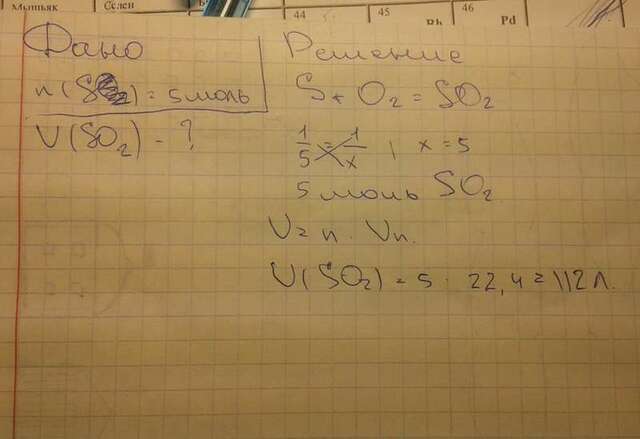 Мышьяк Селен 44 45 Rh 46 Pd
Дано
n(S) = 5 моль
V(SO2) - ?
Решение
S + O2 = SO2
1/5 = 1/x , x = 5
5 моль SO2
V = n · Vn.
V(SO2) = 5 · 22,4 = 112 л.